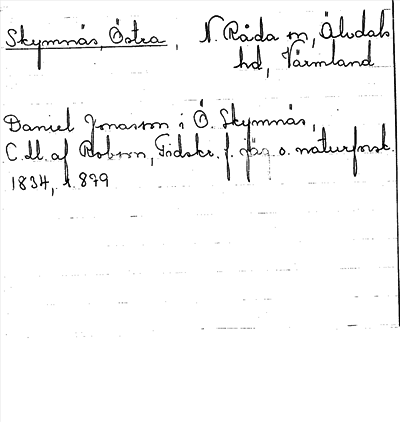 Skymnäs, Östra, N. Råda sn, Älvdals
hd, Värmland
Daniel Jonasson i Ö. Skymnäs,
C. U. af Robson, Tidskr. f. jäg. o. naturforsk.
1834, s. 879